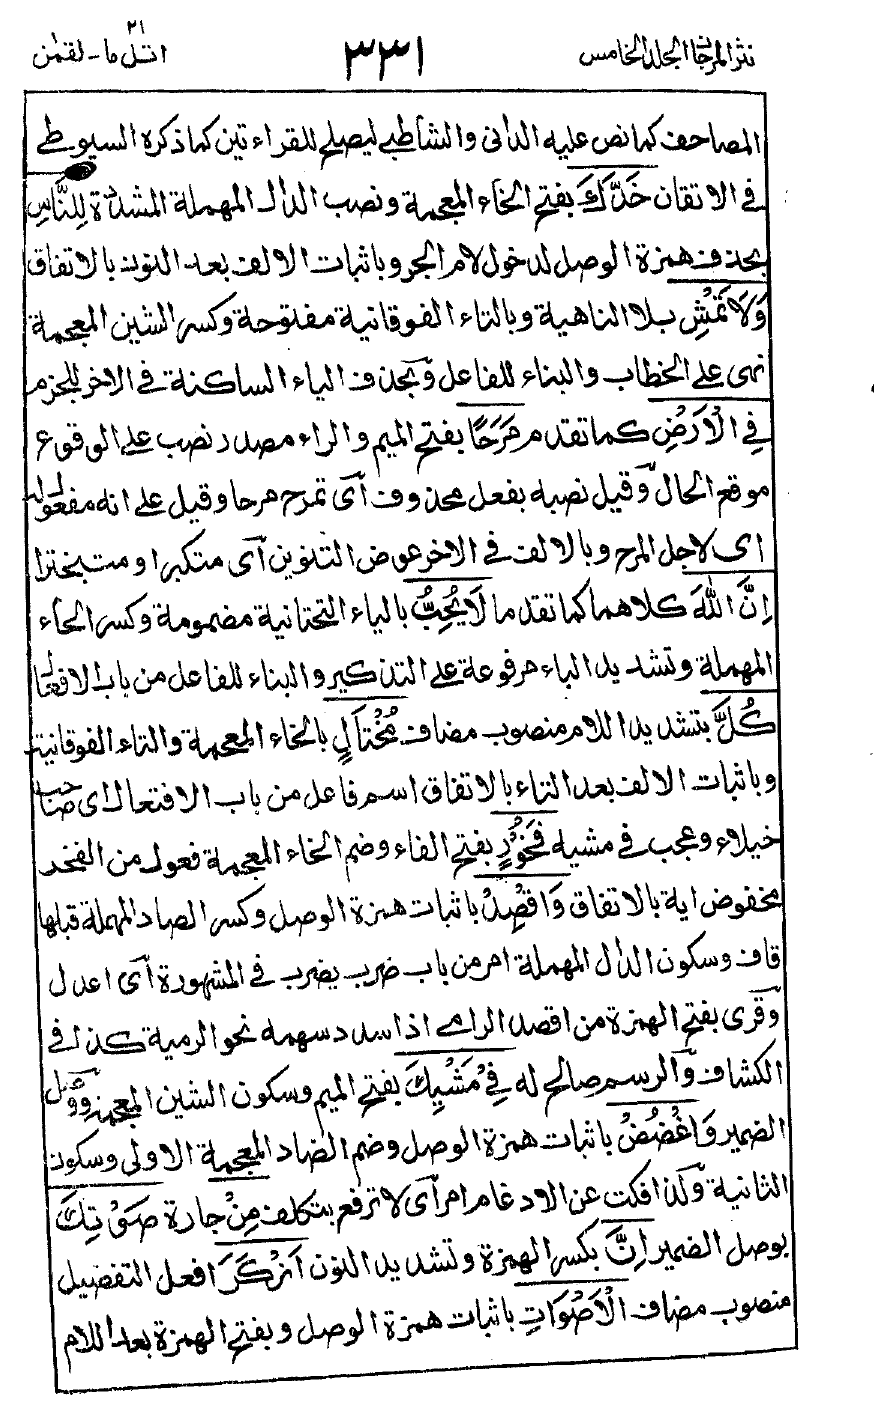 نثر المرجان الجلد الخامس
٣٣١
اتل ما ٢١ - لقمٰن
المصاحف كما نص عليه الدانى والشاطبى ليصلح للقراءتين كما ذكره السيوطى
فى الاتقان خَدَّكَ بفتح الخاء المعجمة ونصب الدال المهملة المشددة لِلنَّاسِ
بحذف همزة الوصل لدخول لام الجر وباثبات الالف بعد النون بالاتفاق
وَلَا تَمْشِ بلا الناهية وبالتاء الفوقانية مفتوحة وكسر الشين المعجمة
نهى على الخطاب والبناء للفاعل وبحذف الياء الساكنة فى الاخر للجزم
فِى الْاَرْضِ كما تقدم مَرَحًا بفتح الميم والراء مصدر نصب على الوقوع
موقع الحال وقيل نصبه بفعل محذوف اى تمرح مرحا وقيل على انه مفعول له
اى لاجل المرح وبالالف فى الاخر عوض التنوين اى متكبرا ومتبخترا
اِنَّ اللّٰهَ كلاهما كما تقدما لَا يُحِبُّ بالياء التحتانية مضمومة وكسر الحاء
المهملة وتشديد الباء مرفوعة على التذكير والبناء للفاعل من باب الافعال
كُلَّ بتشديد اللام منصوب مضاف مُخْتَالٍ بالخاء المعجمة والتاء الفوقانية
وباثبات الالف بعد التاء بالاتفاق اسم فاعل من باب الافتعال اى صاحب
خيلاء وعجب فى مشيه فَخُوْرٍ بفتح الفاء وضم الخاء المعجمة فعول من الفخر
مخفوض اية بالاتفاق وَاقْصِدْ باثبات همزة الوصل وكسر الصاد المهملة قبلها
قاف وسكون الدال المهملة امر من باب ضرب يضرب فى المشهورة اى اعدل
وقرئ بفتح الهمزة من اقصد الرامى اذا سدد سهمه نحو الرمية كذا فى
الكشاف والرسم صالح له فِىْ مَشْيِكَ بفتح الميم وسكون الشين المعجمة ووصل
الضمير وَاغْضُضْ باثبات همزة الوصل وضم الضاد المعجمة الاولى وسكون
الثانية ولذا فكت عن الادغام امر اى لا ترفع بتكلف مِنْ جارة صَوْتِكَ
بوصل الضمير اِنَّ بكسر الهمزة وتشديد النون اَنْكَرَ افعل التفضيل
منصوب مضاف الْاَصْوَاتِ باثبات همزة الوصل وبفتح الهمزة بعد اللام